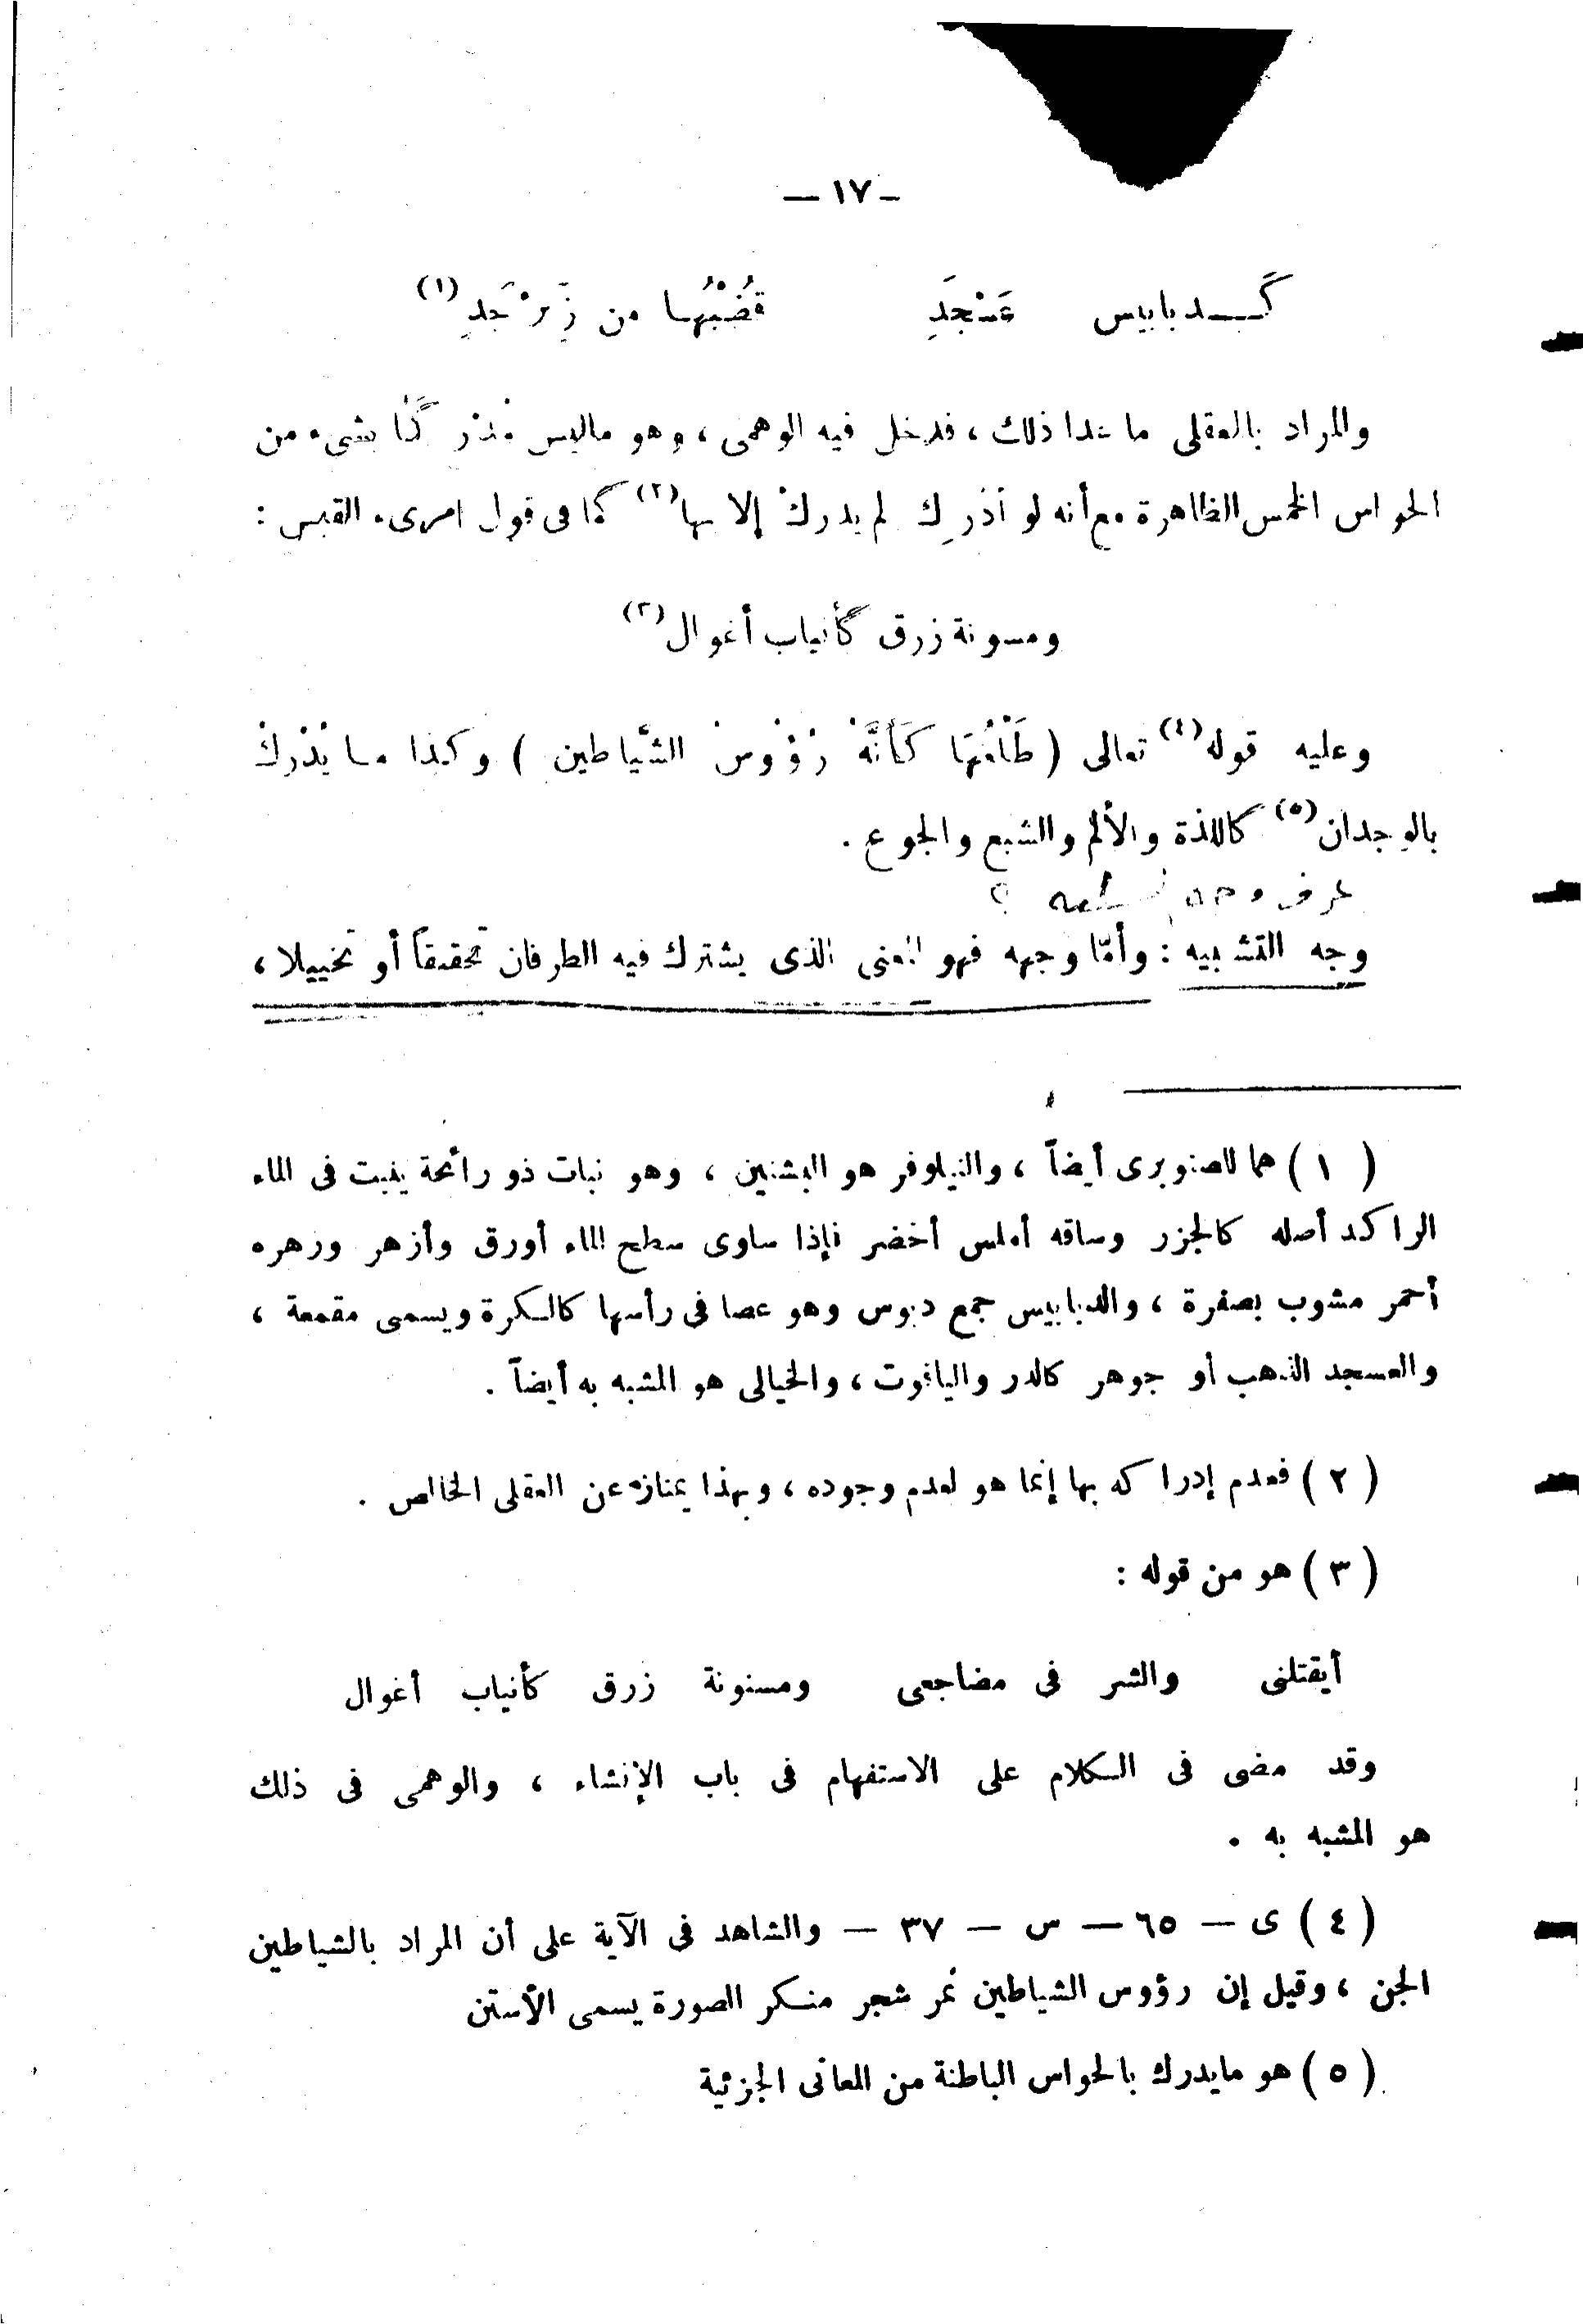 — ١٧ —
كَدبابيس عَسْجَدِ قُضْبُهَا من زَبَرْجَدِ (١)
والمراد بالعقلى ما عدا ذلك ، فدخل فيه الوهمى ، وهو ماليس مُدْرَكاً بشىء من
الحواس الخمس الظاهرة مع أنه لو أُدْرِك لم يدركْ إلا بها (٢) كما فى قول امرىء القيس :
ومسنونة زرق كأنياب أغوال (٣)
وعليه قوله (٤) تعالى ( طَلْعُهَا كَأَنَّهُ رُؤُوسُ الشَّيَاطين ) وكذا ما يُدْرَكُ
بالوجدان (٥) كاللذة والألم والشبع والجوع .
عرف وجه ؟
وجه التشبيه : وأمّا وجهه فهو المعنى الذى يشترك فيه الطرفان تحقيقاً أو تخييلا ،
( ١ ) هما للصنوبرى أيضاً ، والنيلوفر هو البشنين ، وهو نبات ذو رائحة ينبت فى الماء
الراكد أصله كالجزر وساقه أملس أخضر فإذا ساوى سطح الماء أورق وأزهر وزهره
أحمر مشوب بصفرة ، والدبابيس جمع دبوس وهو عصا فى رأسها كالكرة ويسمى مقمعة ،
والعسجد الذهب أو جوهر كالدر والياقوت ، والخيالى هو المشبه به أيضاً .
( ٢ ) فعدم إدراكه بها إنما هو لعدم وجوده ، وبهذا يمتاز عن العقلى الخالص .
( ٣ ) هو من قوله :
أيقتلنى والشر فى مضاجعى ومسنونة زرق كأنياب أغوال
وقد مضى فى الكلام على الاستفهام فى باب الإنشاء ، والوهمى فى ذلك
هو المشبه به .
( ٤ ) ى — ٦٥ — س — ٣٧ — والشاهد فى الآية على أن المراد بالشياطين
الجن ، وقيل إن رؤوس الشياطين ثمر شجر منكر الصورة يسمى الأستن
( ٥ ) هو مايدرك بالحواس الباطنة من المعانى الجزئية